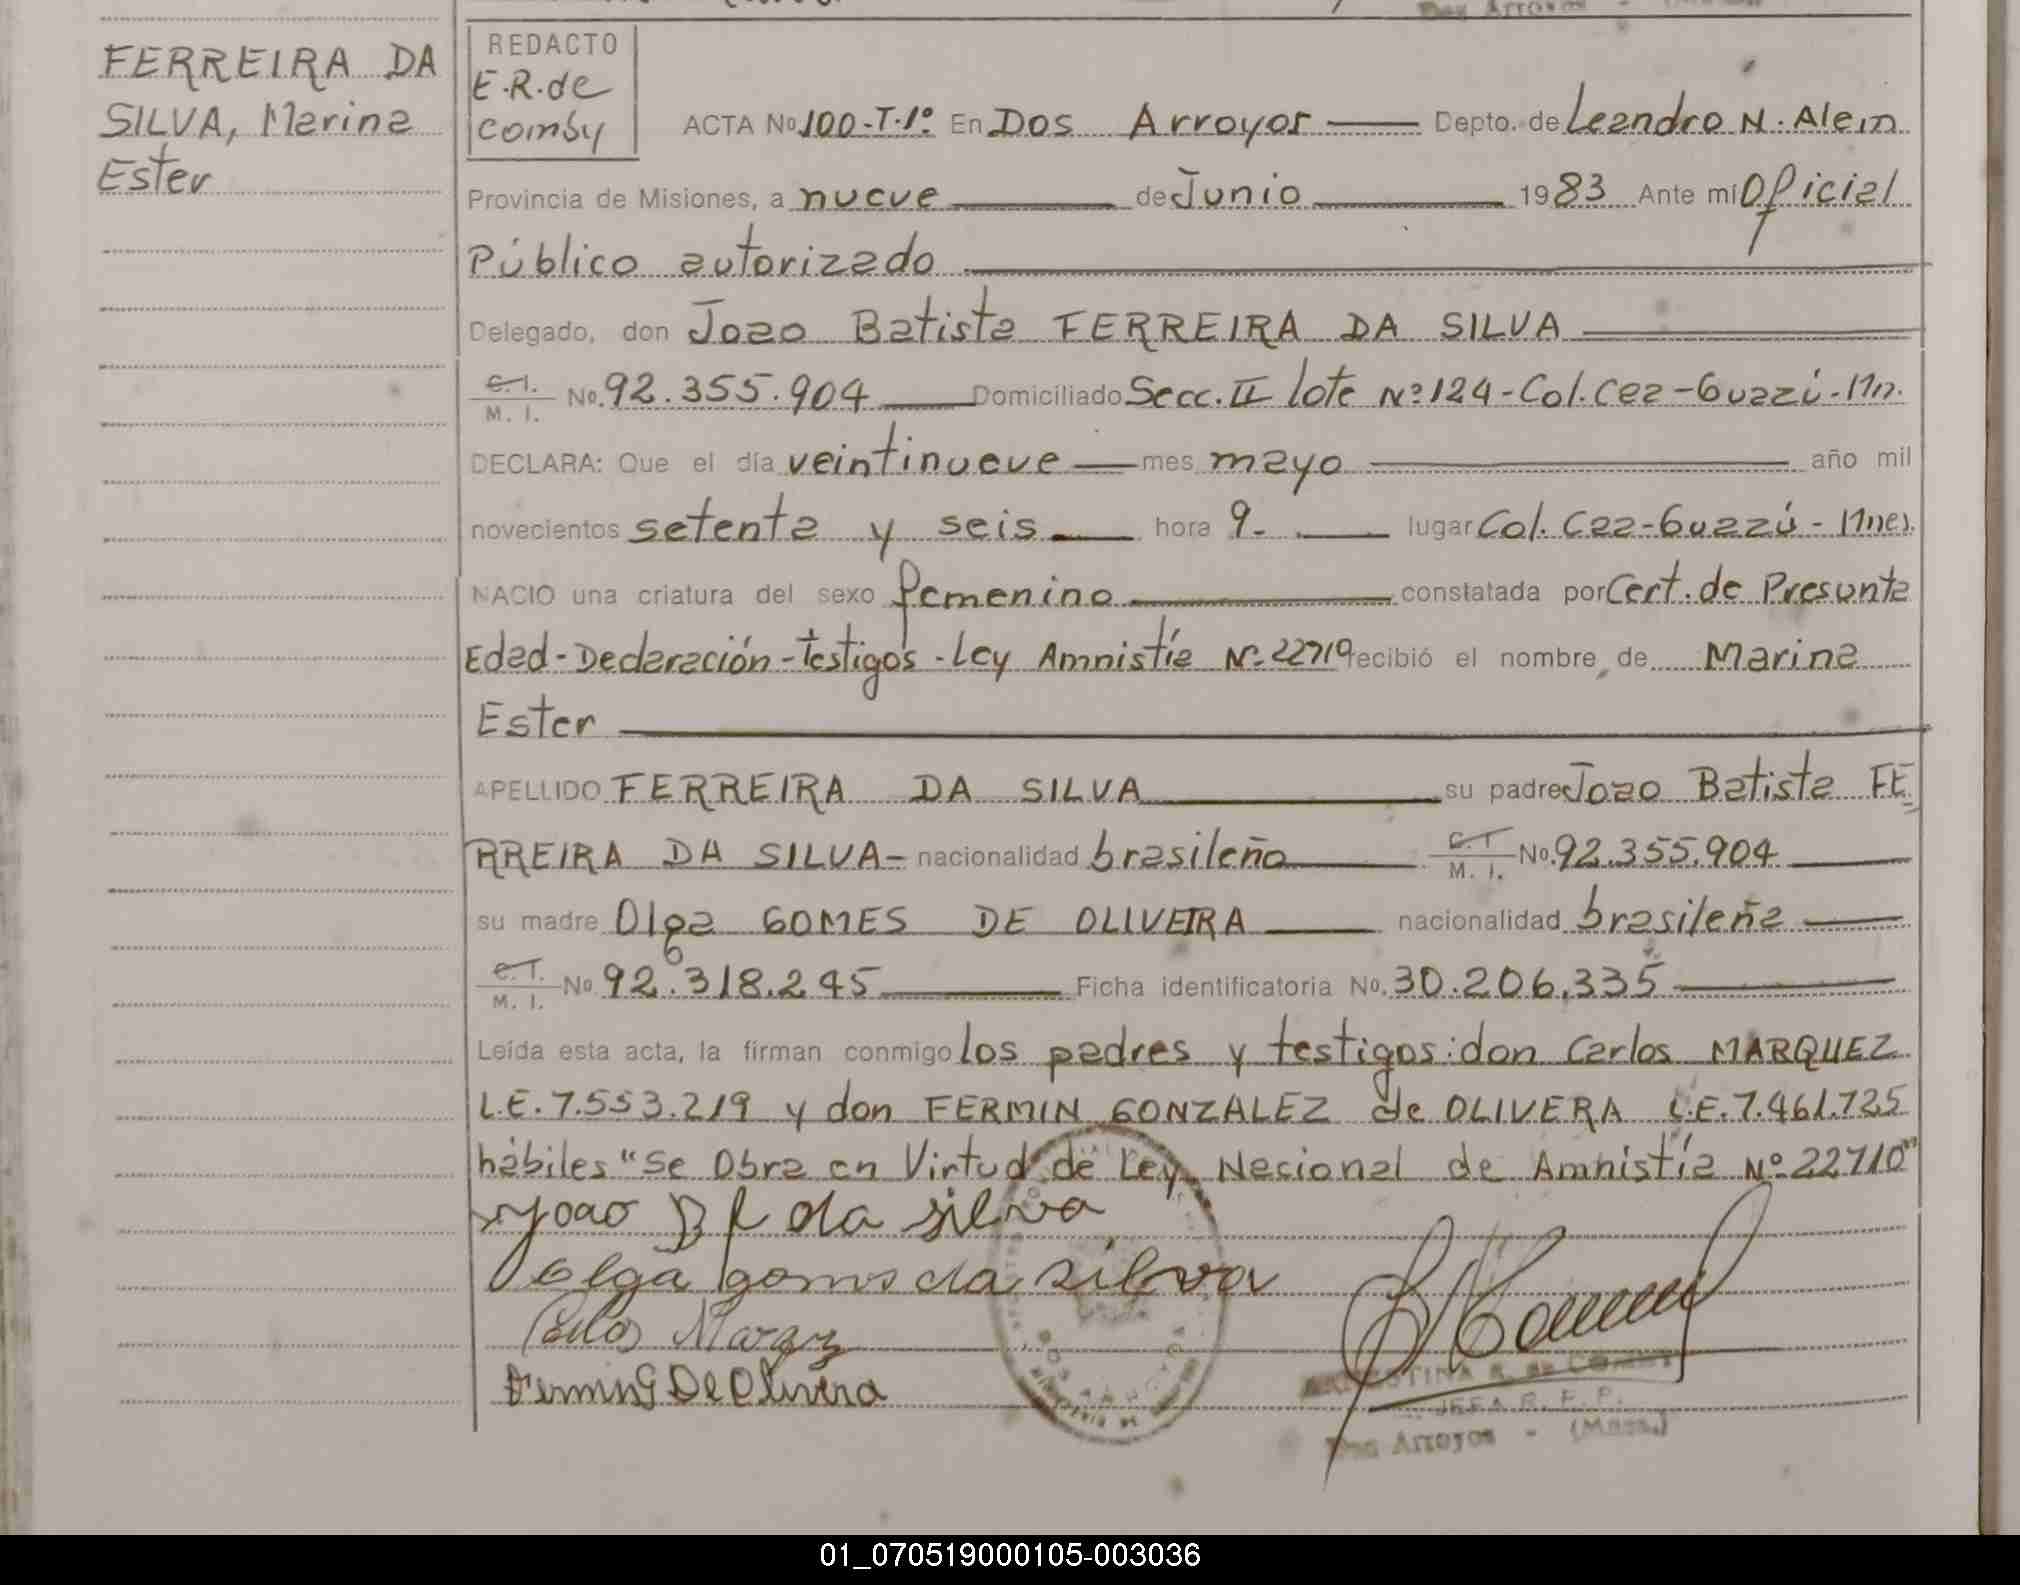 FERREIRA DA
SILVA, Marina
Ester
REDACTO
E.R. de
Comby
ACTA No 100-T-1º En Dos Arroyos Depto. de Leandro N. Alem
Provincia de Misiones, a nueve de Junio 1983 Ante mí Oficial
Público autorizado
Delegado, don Joao Batista FERREIRA DA SILVA
C.I. M. I. No. 92.355.904 Domiciliado Secc. II lote Nº 124-Col. Caa-Guazú-Mn.
DECLARA: Que el día veintinueve mes mayo año mil
novecientos setenta y seis hora 9- lugar Col. Caa-Guazú-Mnes.
NACIO una criatura del sexo femenino constatada por Cert. de Presunta
Edad-Declaración-Testigos-Ley Amnistía Nº 22719 recibió el nombre de Marina
Ester
APELLIDO FERREIRA DA SILVA su padre Joao Batista FE
RREIRA DA SILVA- nacionalidad brasileño C.I. M. I. No. 92.355.904
su madre Olga GOMES DE OLIVEIRA nacionalidad brasileña
C.I. M. I. No. 92.318.245 Ficha identificatoria No. 30.206.335
Leída esta acta, la firman conmigo los padres y testigos: don Carlos MARQUEZ
L.E. 7.553.219 y don FERMIN GONZALEZ de OLIVERA L.E. 7.461.725
hábiles "Se Obra en Virtud de Ley Nacional de Amnistía Nº 22710"
Joao B f da silva
olga goms da silva
Carlos
Fermin G De Olivera
R. de COMBY
JEFA R. F. P.
Dos Arroyos - (Mnes.)
01_070519000105-003036